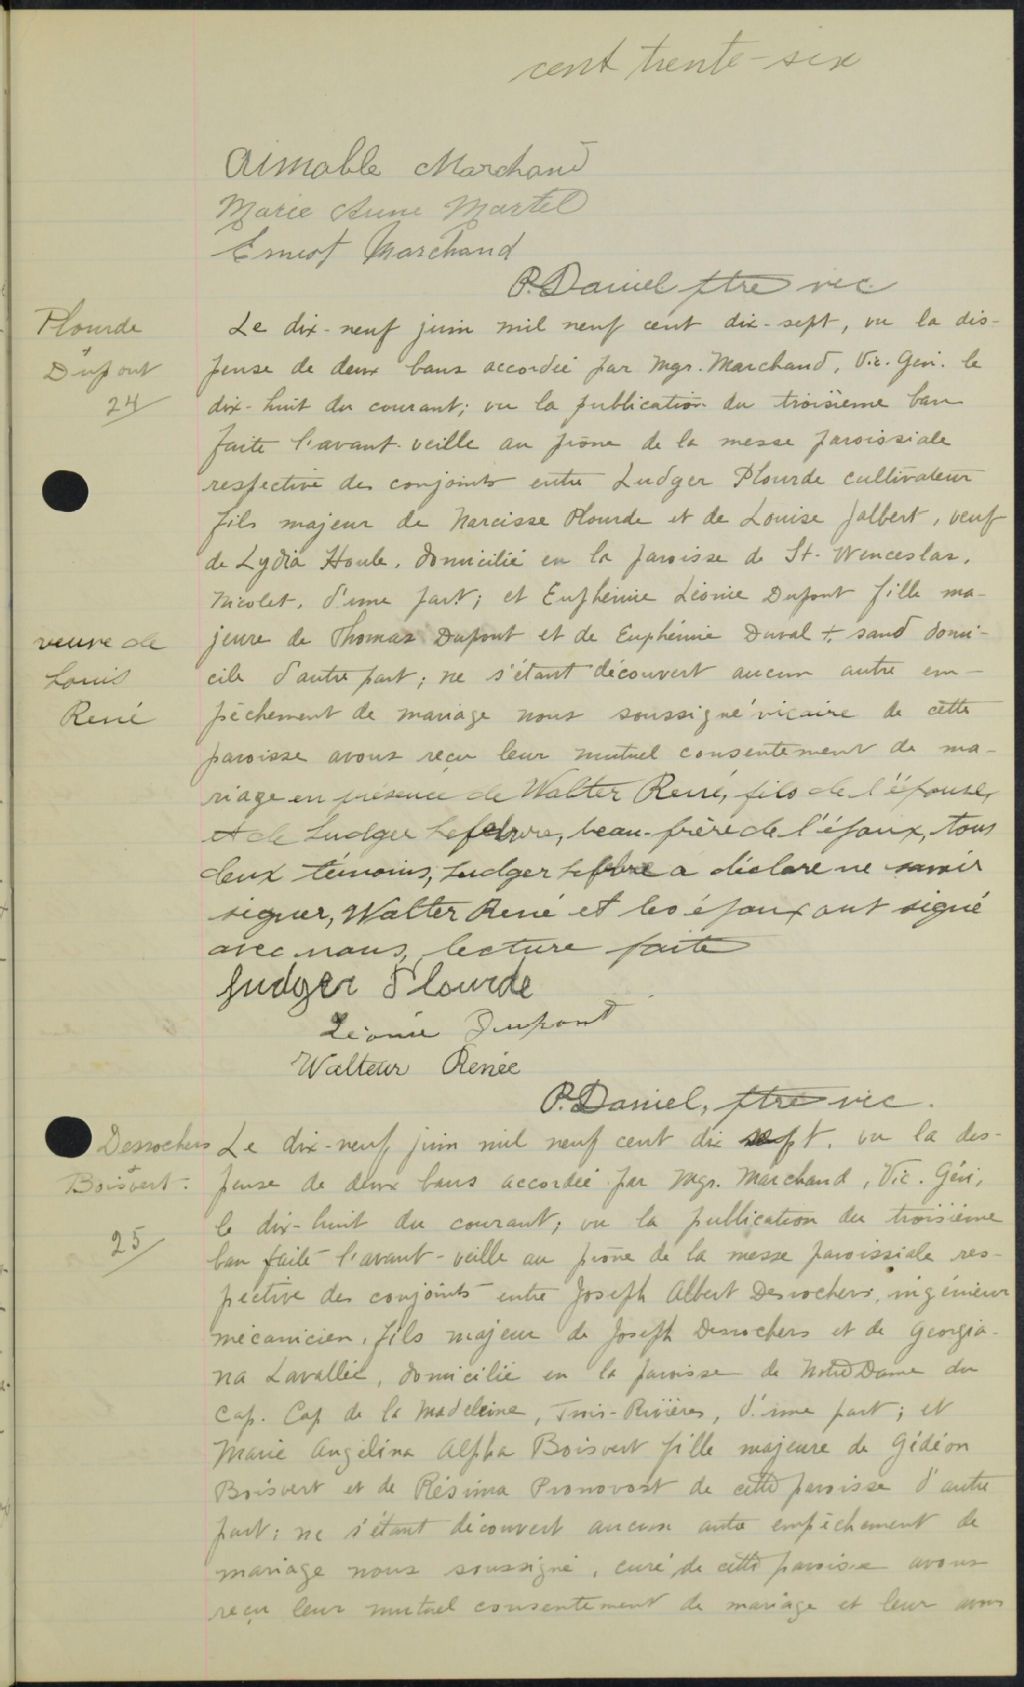 cent trente-six
Aimable Marchand
Marie Anne Martel
Ernest Marchand
P. Daniel ptre vic
Plourde
+
Dupont
24
Le dix-neuf juin mil neuf cent dix-sept, vu la dis-
pense de deux bans accordée par Mgr. Marchand, Vic. Gén. le
dix-huit du courant; vu la publication du troisième ban
faite l'avant-veille au prône de la messe paroissiale
respective des conjoints entre Ludger Plourde cultivateur
fils majeur de Narcisse Plourde et de Louise Jalbert, veuf
de Lydia Houle, domicilié en la paroisse de St-Wenceslas,
Nicolet, d'une part; et Euphémie Léonie Dupont fille ma-
veuve de
Louis
René
jeure de Thomas Dupont et de Euphémie Duval +, sans domi-
cile d'autre part; ne s'étant découvert aucun autre em-
pêchement de mariage nous soussigné vicaire de cette
paroisse avons reçu leur mutuel consentement de ma-
riage en présence de Walter René, fils de l'épouse,
et de Ludger Lefebvre, beau-frère de l'époux, tous
deux témoins, Ludger Lefebvre a déclaré ne savoir
signer, Walter René et les époux ont signé
avec nous, lecture faite
Ludger Plourde
Léonie Dupont
Walteur Renée
P. Daniel, ptre vic.
Desrochers
+
Boisvert.
25
Le dix-neuf juin mil neuf cent dix sept, vu la des-
pense de deux bans accordée par Mgr. Marchand, Vic. Gén,
le dix-huit du courant; vu la publication du troisième
ban faite l'avant-veille au prône de la messe paroissiale res-
pective des conjoints entre Joseph Albert Desrochers, ingénieur
mécanicien, fils majeur de Joseph Desrochers et de Georgia-
na Lavallée, domicilié en la paroisse de Notre Dame du
Cap. Cap de la Madeleine, Trois-Rivières, d'une part; et
Marie Angélina Alpha Boisvert fille majeure de Gédéon
Boisvert et de Résima Pronovost de cette paroisse d'autre
part; ne s'étant découvert aucun autre empêchement de
mariage nous soussigné, curé de cette paroisse avons
reçu leur mutuel consentement de mariage et leur avons